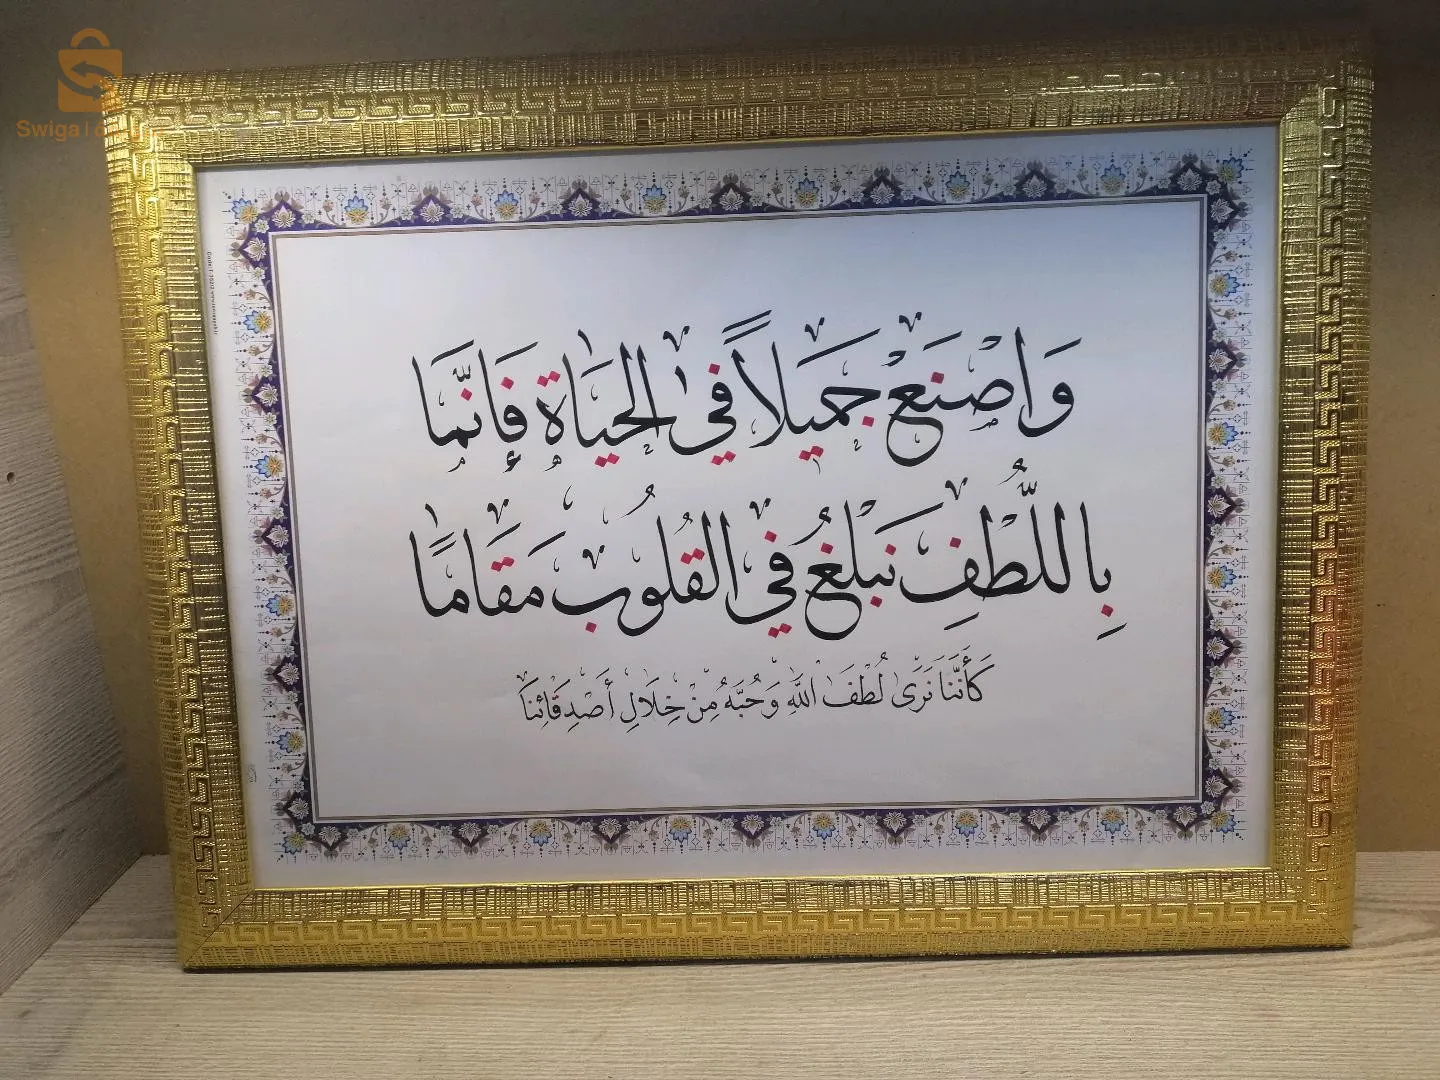 Swigalo
وَاصْنَعْ جَمِيلاً فِي الحَيَاةِ فَإِنَّمَا
بِاللُّطْفِ نَبْلُغُ فِي القُلُوبِ مَقَامًا
كَأَنَّنَا نَرَى لُطْفَ اللّٰهِ وَحُبَّهُ مِنْ خِلَالِ أَصْدِقَائِنَا